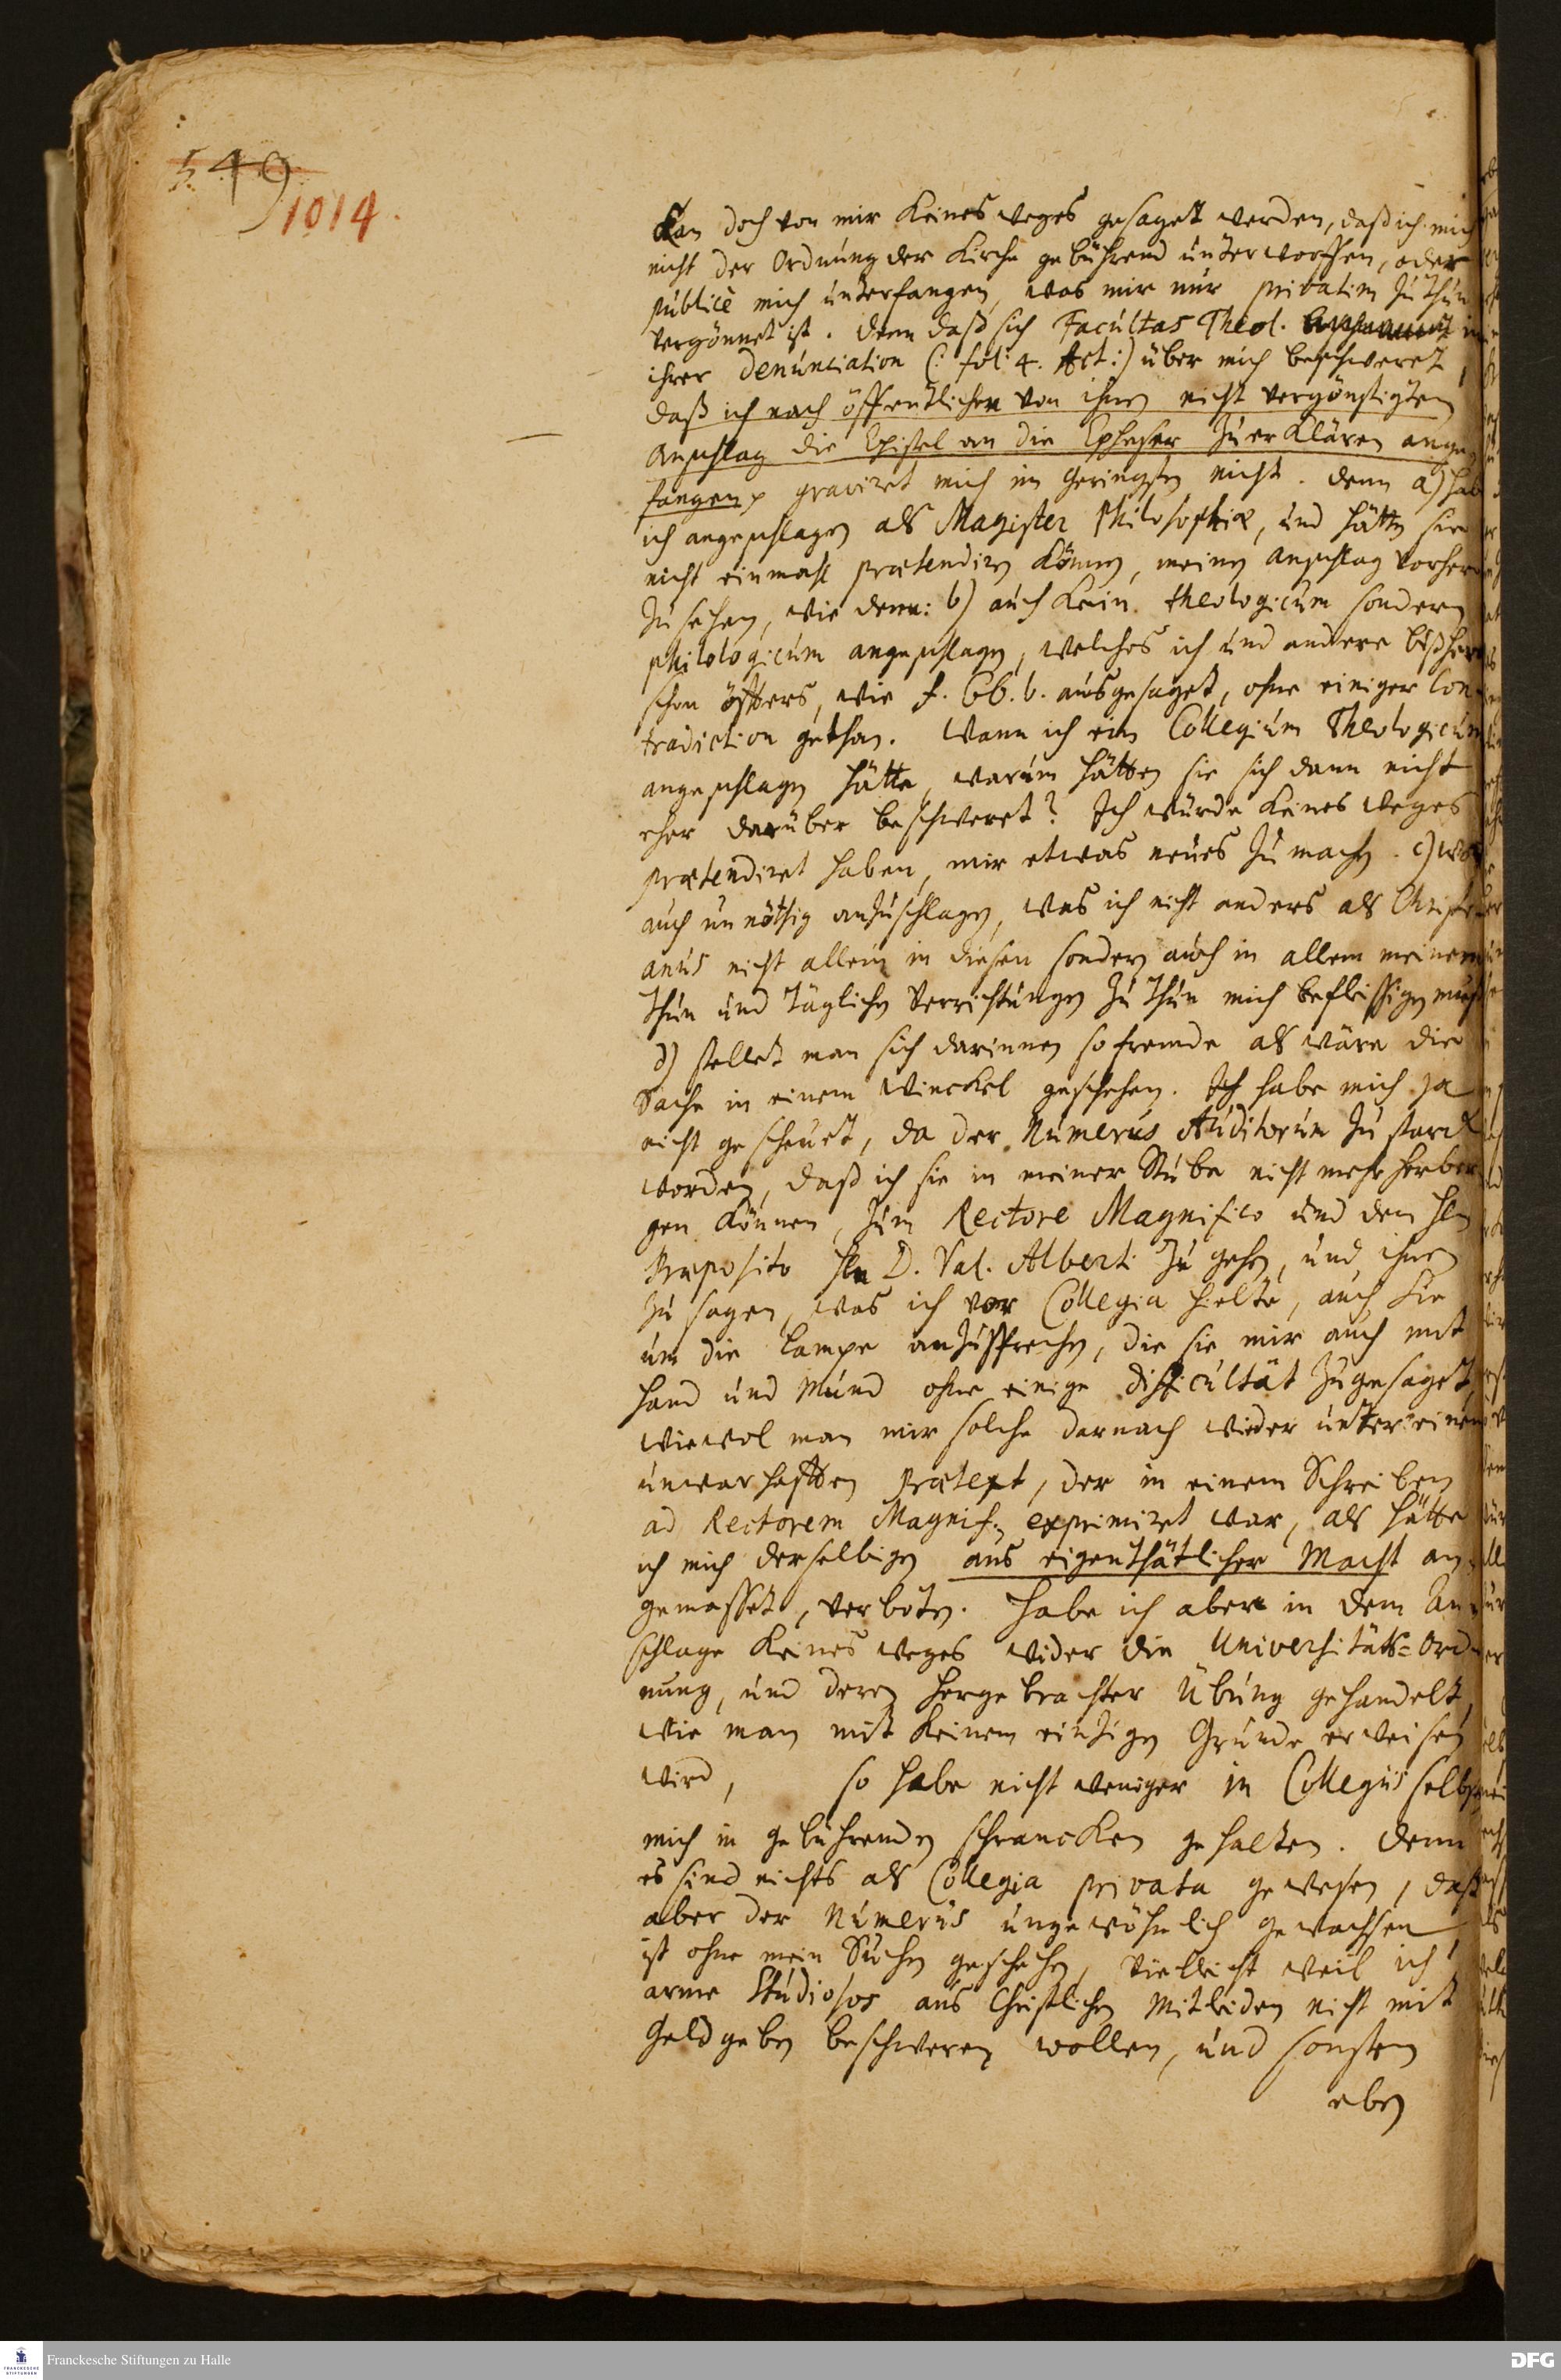 549
1014.
Kan doch von mir keines weges gesaget werden, daß ich mich
nicht der Ordnung der Kirche gebührend unterworffen, oder
publicè mich unterfangen, was mir nur privatim zu thun
vergönnet ist. Denn daß sich Facultas Theol. in
ihrer Denunciation (: fol: 4. Act:) über mich beschweret,
daß ich nach öffentlichen von ihnen nicht vergönstigten
Anschlag die Epistel an die Epheser zu erklären ange-
fangen graviret mich im geringsten nicht. Denn a) hab
ich angeschlagen als Magister Philosophiæ, und hätten sie
nicht einmahl prætendiren können, meinen Anschlag vorher
zu sehen, wie denn: b) auch kein theologicum sondern
philologicum angeschlagen, welches ich und andere bißher
schon öffters, wie f. 66. b. ausgesaget, ohne einiger Con-
tradiction gethan. Wann ich ein Collegium Theologicum
angeschlagen hätte, warum hätten sie sich dann nicht
eher darüber beschweret? Ich würde keines weges
prætendiret haben, mir etwas neues zu machen. c) war
auch unnöthig anzuschlagen, was ich nicht anders als Christi-
anus nicht allein in diesen sondern auch in allem meinem
thun und täglichen Verrichtungen zu thun mich befleissigen muß
d) stellet man sich darinnen so fremde als wäre die
Sache in einem Winckel geschehen. Ich habe mich ja
nicht gescheuet, da der Numerus Auditorum zu starck
worden, daß ich sie in meiner Stube nicht mehr herber-
gen können, zum Rectore Magnifico und dem Hln
Præposito Hln D. Val. Alberti zu gehen, und ihnen
zu sagen, was ich vor Collegia hielte, auch sie
um die Lampe anzusprechen, die sie mir auch mit
Hand und Mund ohne einige difficultät zugesaget,
wiewol man mir solche darnach wieder unter einem
unwarhafften Prætext, der in einem Schreiben
ad Rectorem Magnif. exprimiret war, als hätte
ich mich derselbigen aus eigenthätlicher Macht an-
gemasset, verboten. Habe ich aber in dem An-
schlage keines weges wider die Universitäts-Ord-
nung, und deren hergebrachter Übung gehandelt,
wie man mit keinem eintzigen Grunde erweisen
wird, so habe nicht weniger in Collegiis selbst
mich in gebührenden schrancken gehalten. Denn
es sind nichts als Collegia privata gewesen, daß
aber der Numerus ungewöhnlich gewachsen
ist ohne mein Suchen geschehen, vielleicht weil ich
arme Studiosos aus Christlichen Mitleiden nicht mit
Geld geben beschweren wollen, und sonsten
eben
Franckesche Stiftungen zu Halle
DFG